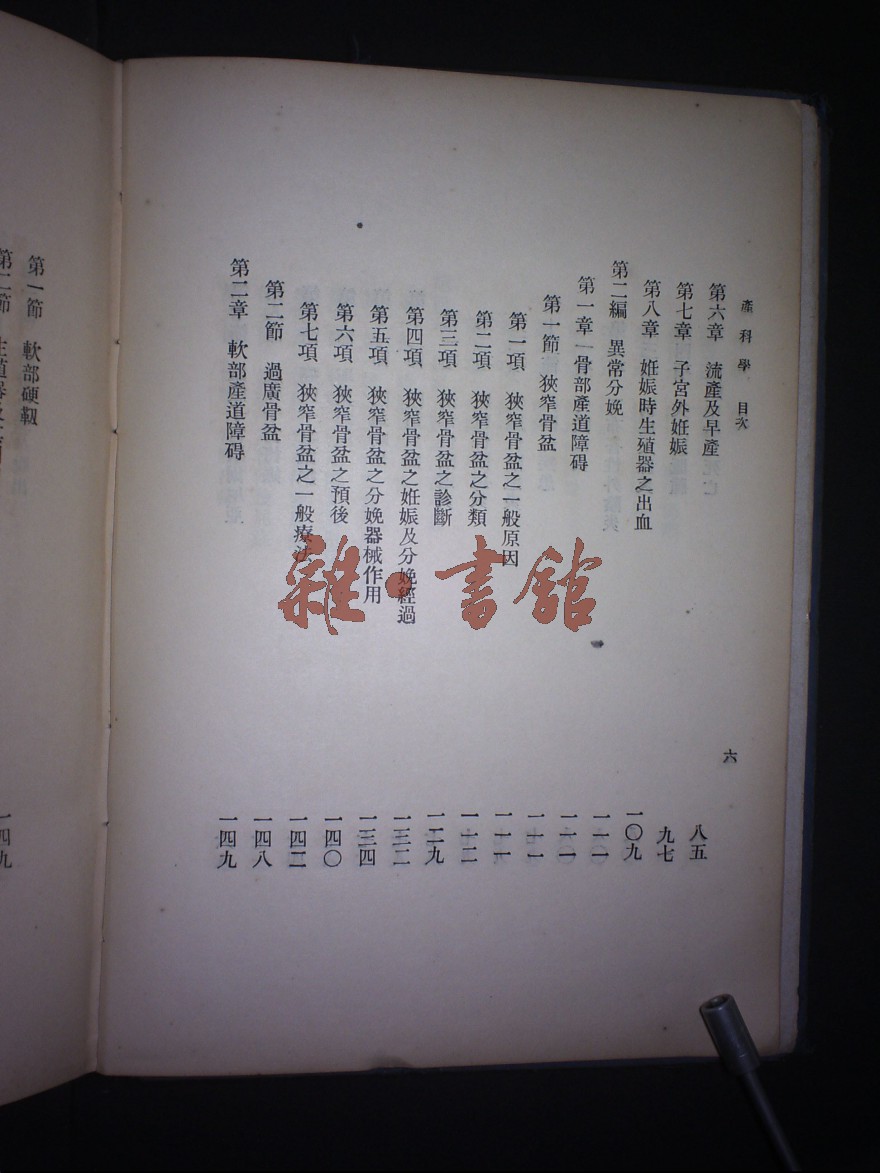 產科學 目次 六
第六章 流產及早產 八五
第七章 子宮外妊娠 九七
第八章 妊娠時生殖器之出血 一〇九
第二編 異常分娩 一一一
第一章 骨部產道障碍 一一一
第一節 狹窄骨盆 一一一
第一項 狹窄骨盆之一般原因 一一一
第二項 狹窄骨盆之分類 一一二
第三項 狹窄骨盆之診斷 一二九
第四項 狹窄骨盆之妊娠及分娩經過 一三二
第五項 狹窄骨盆之分娩器械作用 一三四
第六項 狹窄骨盆之預後 一四〇
第七項 狹窄骨盆之一般療法 一四二
第二節 過廣骨盆 一四八
第二章 軟部產道障碍 一四九
第一節 軟部硬靱 一四九
第二節
雜·書館